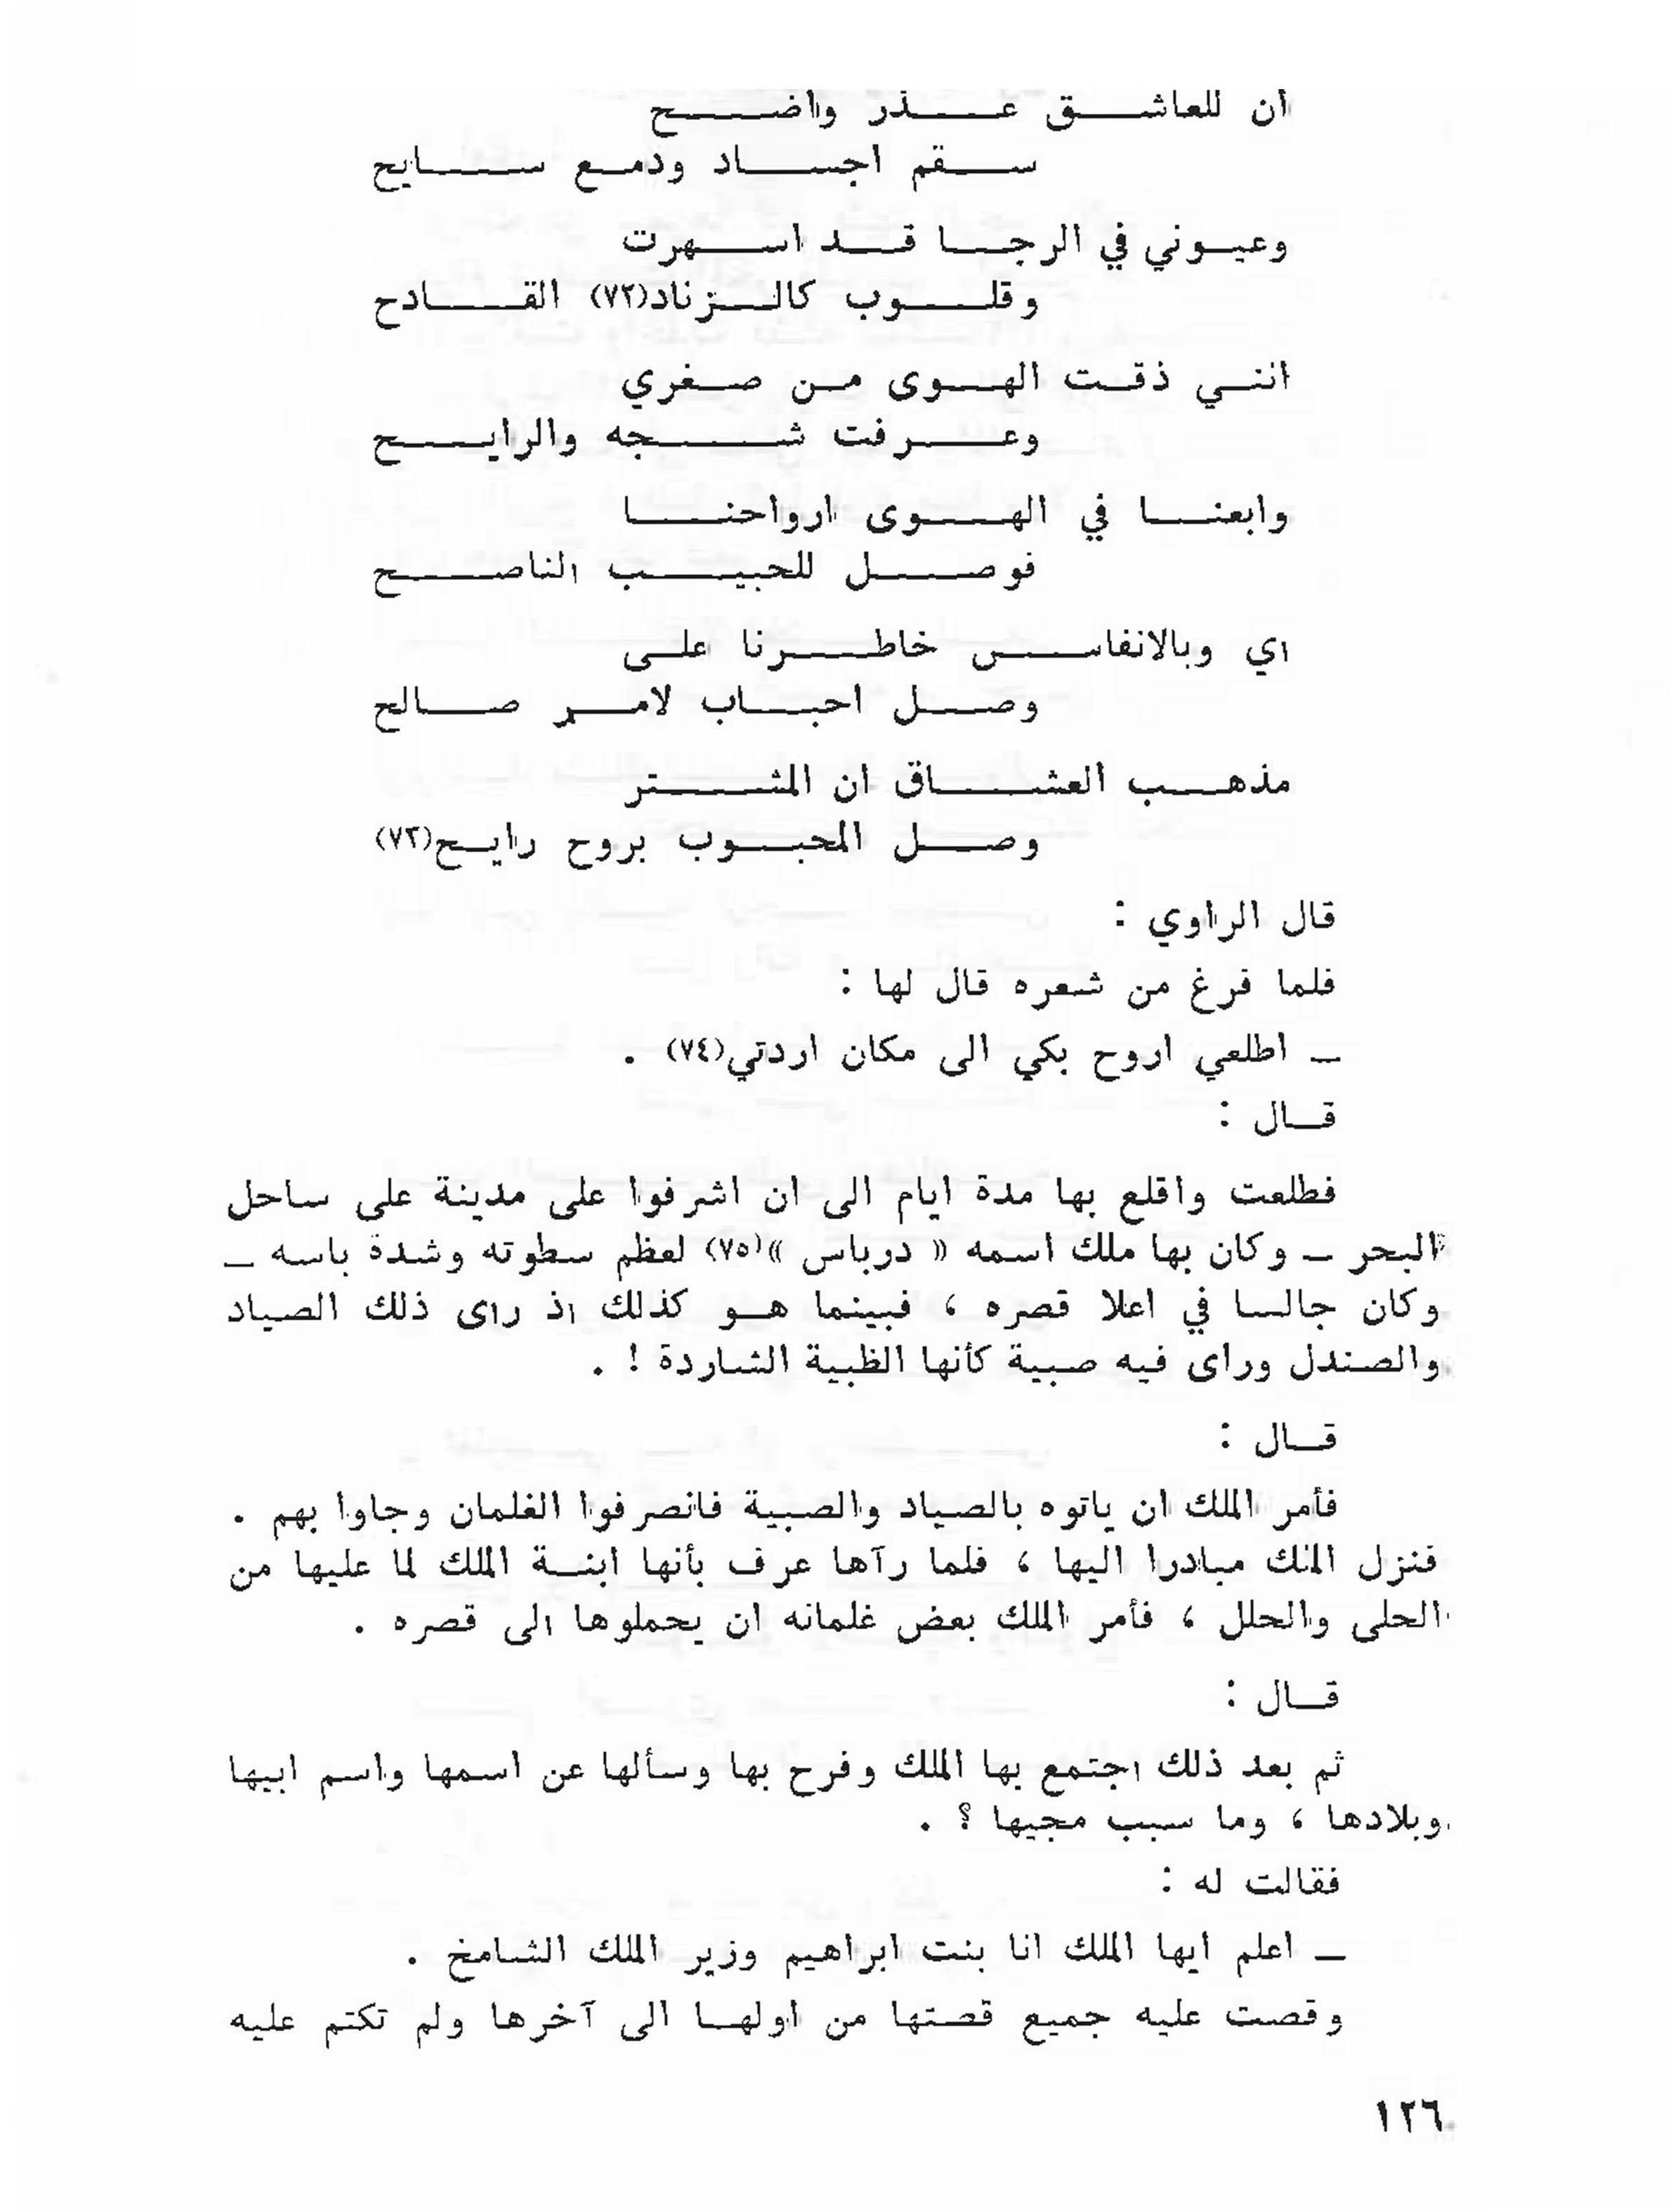 ان للعاشق عذر واضح
سقم اجساد ودمع سايح
وعيوني في الرجا قد اسهرت
وقلوب كالزناد(٧٢) القادح
انني ذقت الهوى من صغري
وعرفت شجه والرايح
وابعنا في الهوى ارواحنا
فوصل للحبيب الناصح
اي وبالانفاس خاطرنا على
وصل احباب لامر صالح
مذهب العشاق ان المشتر
وصل المحبوب بروح رايح(٧٣)
قال الراوي :
فلما فرغ من شعره قال لها :
ــ اطلعي اروح بكي الى مكان اردتي(٧٤) .
قال :
فطلعت واقلع بها مدة ايام الى ان اشرفوا على مدينة على ساحل
البحر ــ وكان بها ملك اسمه « درباس »(٧٥) لعظم سطوته وشدة باسه ــ
وكان جالسا في اعلا قصره ، فبينما هو كذلك اذ راى ذلك الصياد
والصندل وراى فيه صبية كأنها الظبية الشاردة ! .
قال :
فأمر الملك ان ياتوه بالصياد والصبية فانصرفوا الغلمان وجاوا بهم .
فنزل الملك مبادرا اليها ، فلما رآها عرف بأنها ابنة الملك لما عليها من
الحلى والحلل ، فأمر الملك بعض غلمانه ان يحملوها الى قصره .
قال :
ثم بعد ذلك اجتمع بها الملك وفرح بها وسألها عن اسمها واسم ابيها
وبلادها ، وما سبب مجيها ؟ .
فقالت له :
ــ اعلم ايها الملك انا بنت ابراهيم وزير الملك الشامخ .
وقصت عليه جميع قصتها من اولها الى آخرها ولم تكتم عليه
١٢٦